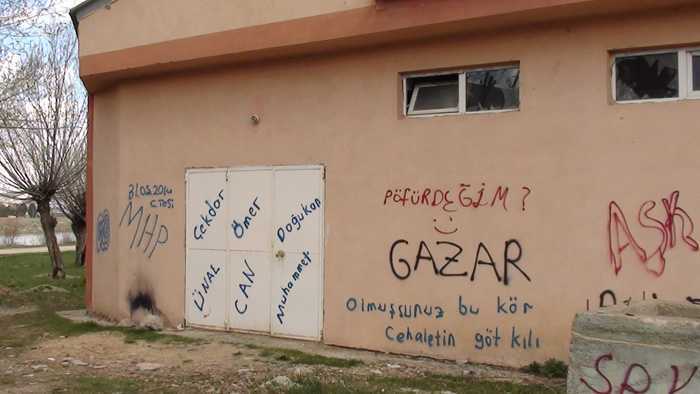 31.05.2014
C.TESİ
MHP
Çekdar
Ömer
Doğukan
ÜNAL
CAN
Muhammet
PÖFÜRDEĞİM ?
GAZAR
Olmuşsunuz bu kör
Cehaletin göt kılı
AŞK